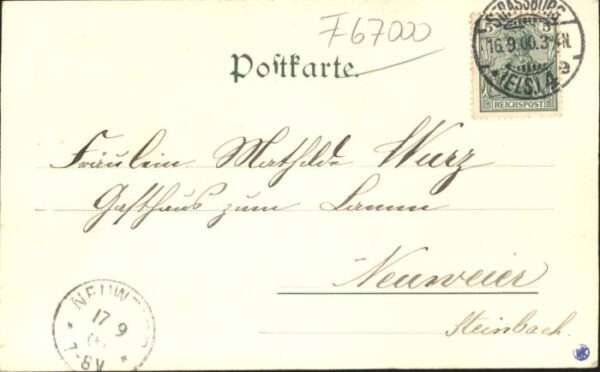 F67000
Postkarte.
STRASSBURG
16.9.00.3-4N.
(ELS.) A
REICHSPOST
Fräulein Mathilde Wurz
Gasthaus zum Lamm
Neuweier
Steinbach.
NEUW
17 9
7-8V